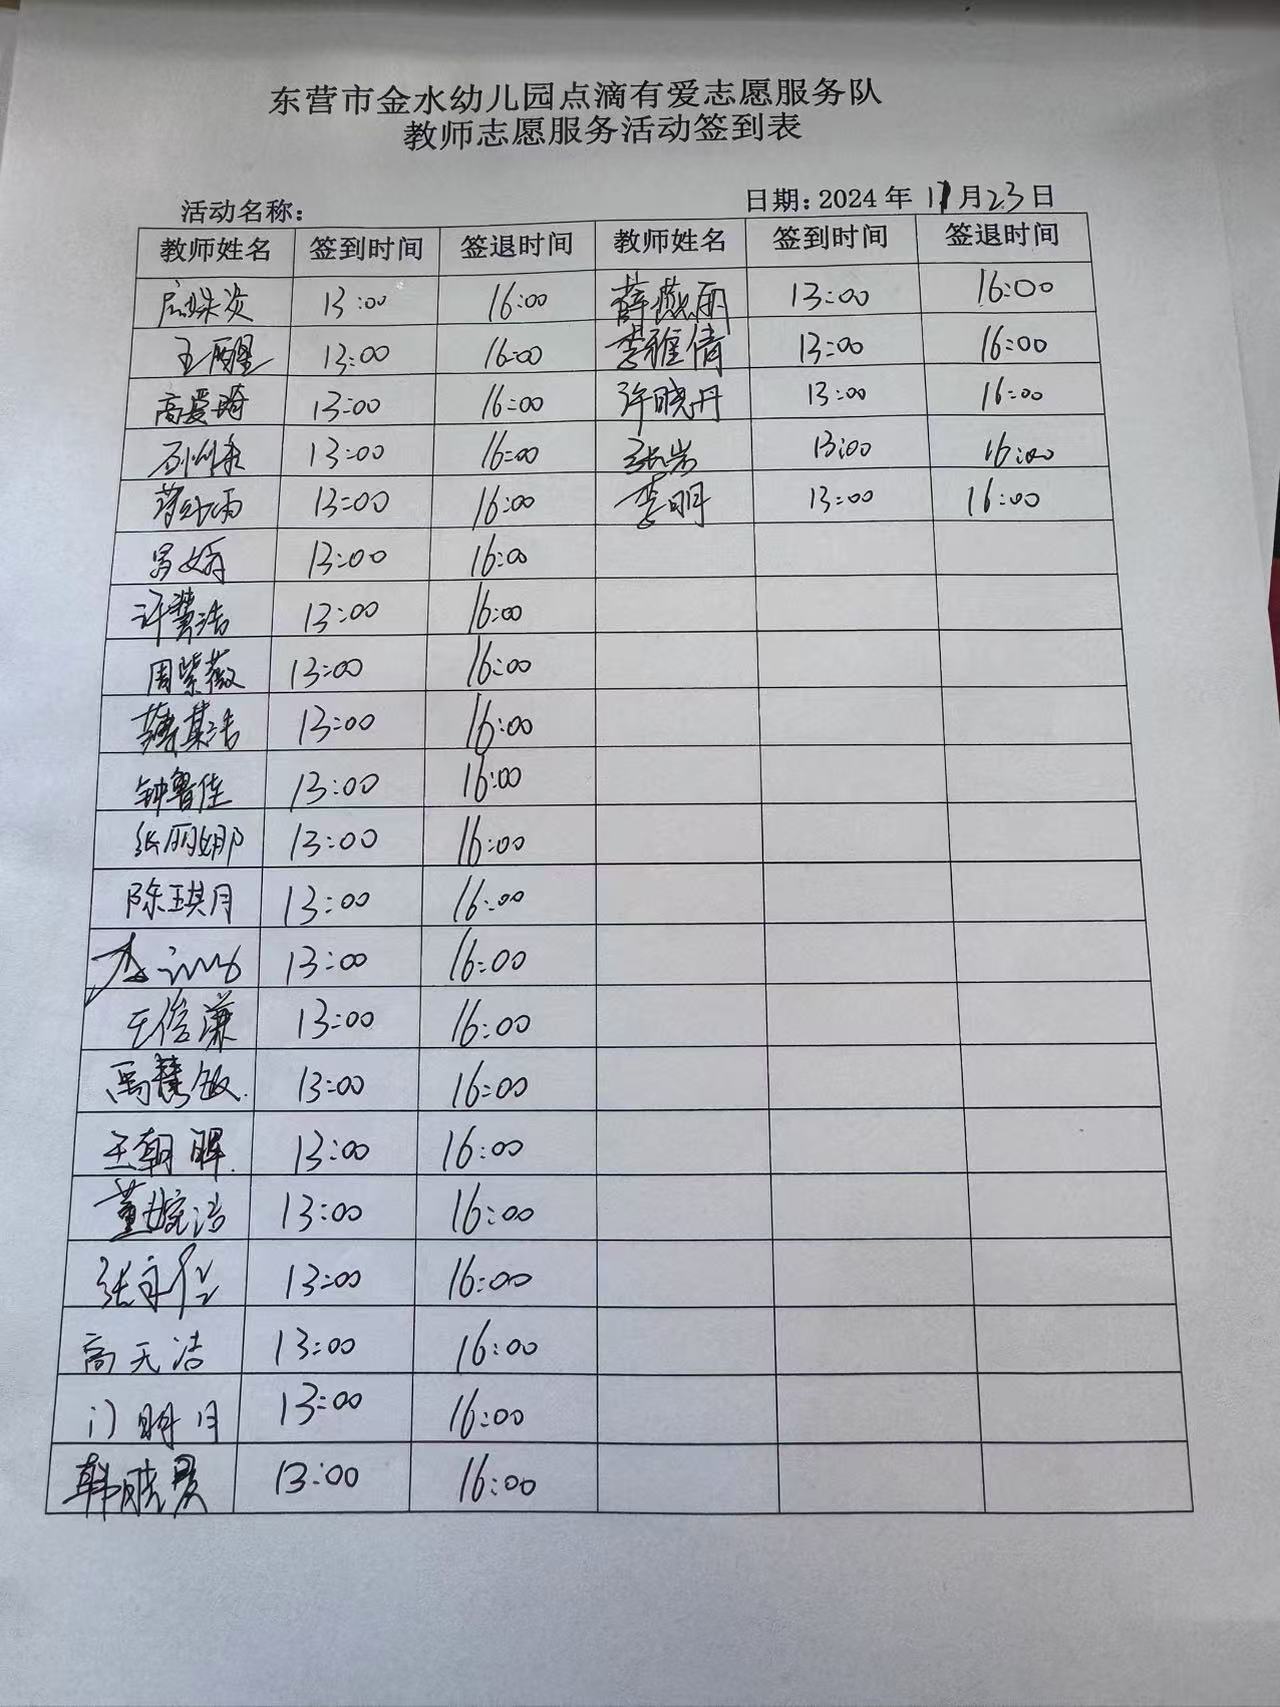 东营市金水幼儿园点滴有爱志愿服务队
教师志愿服务活动签到表
活动名称: 日期: 2024 年 11月23日
教师姓名 签到时间 签退时间 教师姓名 签到时间 签退时间
13:00 16:00 薛薇丽 13:00 16:00
王醒 13:00 16:00 李雅倩 13:00 16:00
高爱琦 13:00 16:00 许晓丹 13:00 16:00
13:00 16:00 张岩 13:00 16:00
13:00 16:00 李明 13:00 16:00
13:00 16:00
许慧洁 13:00 16:00
周紫薇 13:00 16:00
13:00 16:00
钟鲁佳 13:00 16:00
张丽娜 13:00 16:00
陈琪月 13:00 16:00
13:00 16:00
王俊谦 13:00 16:00
禹慧敏 13:00 16:00
王朝晖 13:00 16:00
董婉洁 13:00 16:00
张永仁 13:00 16:00
高天洁 13:00 16:00
门明月 13:00 16:00
韩晓曼 13:00 16:00